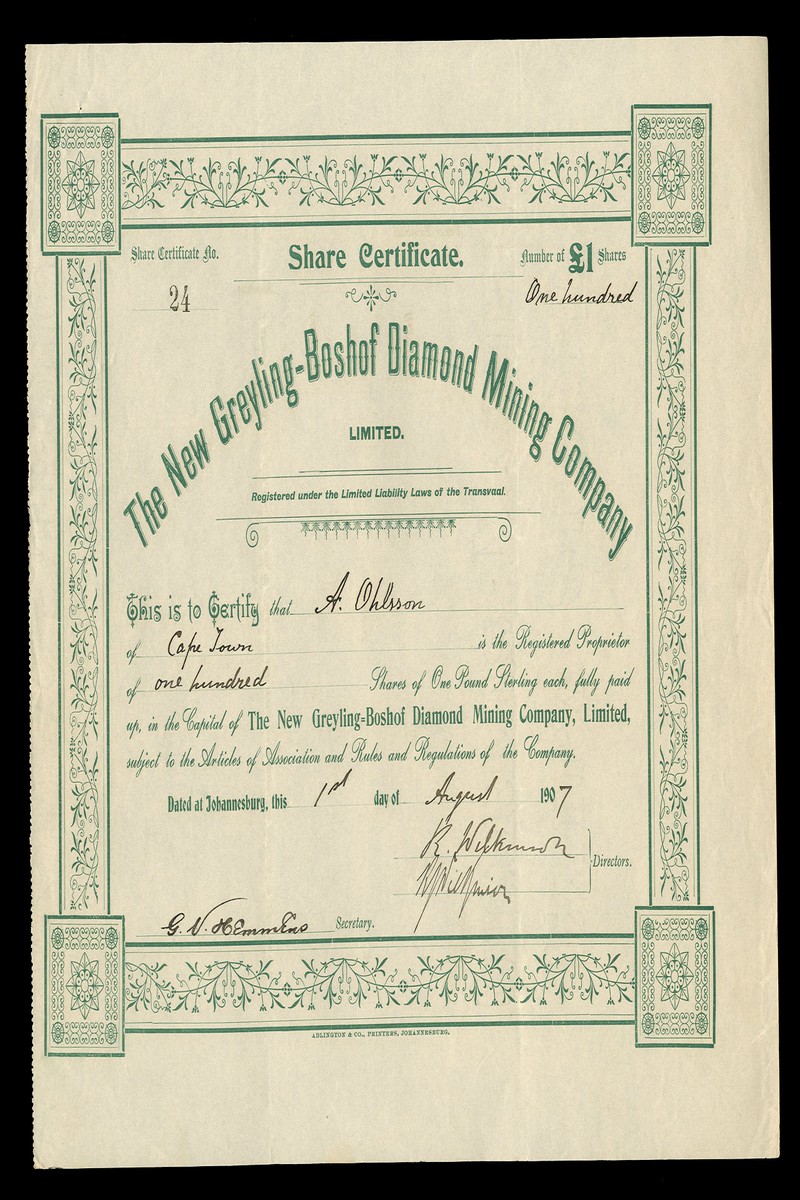 Share Certificate No.
Share Certificate.
Number of £1 Shares
24
One hundred
The New Greyling-Boshof Diamond Mining Company
LIMITED.
Registered under the Limited Liability Laws of the Transvaal.
This is to Certify that A. Ohlsson
of Cape Town is the Registered Proprietor
of one hundred Shares of One Pound Sterling each, fully paid
up, in the Capital of The New Greyling-Boshof Diamond Mining Company, Limited,
subject to the Articles of Association and Rules and Regulations of the Company.
Dated at Johannesburg, this 1st day of August 1907
R. Wilkinson
Directors.
G. V. Hemmens Secretary.
ADLINGTON & CO., PRINTERS, JOHANNESBURG.